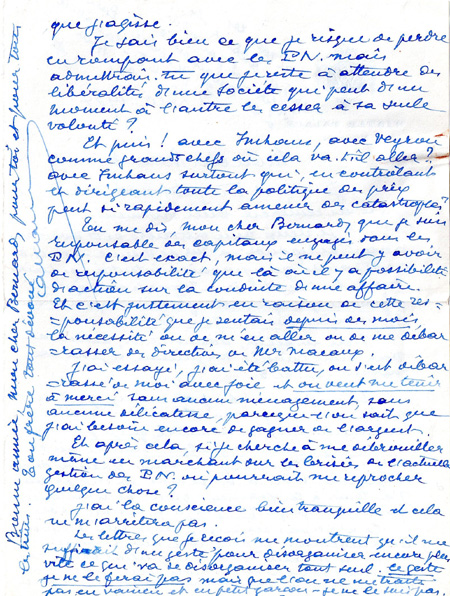 que j'agisse.
Je sais bien ce que je risque de perdre
en rompant avec les P.N. mais
admettrais-tu que je reste à attendre des
libéralités d'une société qui peut d'un
moment à l'autre les cesser à sa seule
volonté ?
Et puis ! avec Imhaus, avec Veyron
comme grands chefs où cela va-t-il aller ?
avec Imhaus surtout qui, en contrôlant
et dirigeant toute la politique des prix
peut si rapidement amener des catastrophes
Tu me dis, mon cher Bernard, que je suis
responsable des capitaux engagés dans les
P.N. C'est exact, mais il ne peut y avoir
de responsabilité que là où il y a possibilité
d'action sur la conduite d'une affaire.
Et c'est justement en raison de cette res-
=ponsabilité que je sentais depuis des mois
la nécessité ou de m'en aller ou de me débar
=rasser des directives de
J'ai essayé, j'ai été battu, on s'est débar
=rassé de moi avec joie et on veut me tenir
à merci sans aucun ménagement, sans
aucune délicatesse, parce que l'on sait que
j'ai besoin encore de gagner de l'argent.
Et après cela, si je cherche à me débrouiller
même en marchant sur les brisées de l'actuelle
gestion des P.N. on pourrait me reprocher
quelque chose ?
J'ai la conscience bien tranquille et cela
ne m'arrêtera pas.
Les lettres que je reçois me montrent qu'il me
suffirait d'un geste pour désorganiser encore plus
vite ce qui va se désorganiser tout seul. Ce geste
je ne le ferai pas mais que l'on ne me traite
pas en vaincu et en petit garçon - je ne le suis pas.
Bonne année mon cher Bernard, pour toi et pour tous
les tiens. Ton frère tout dévoué